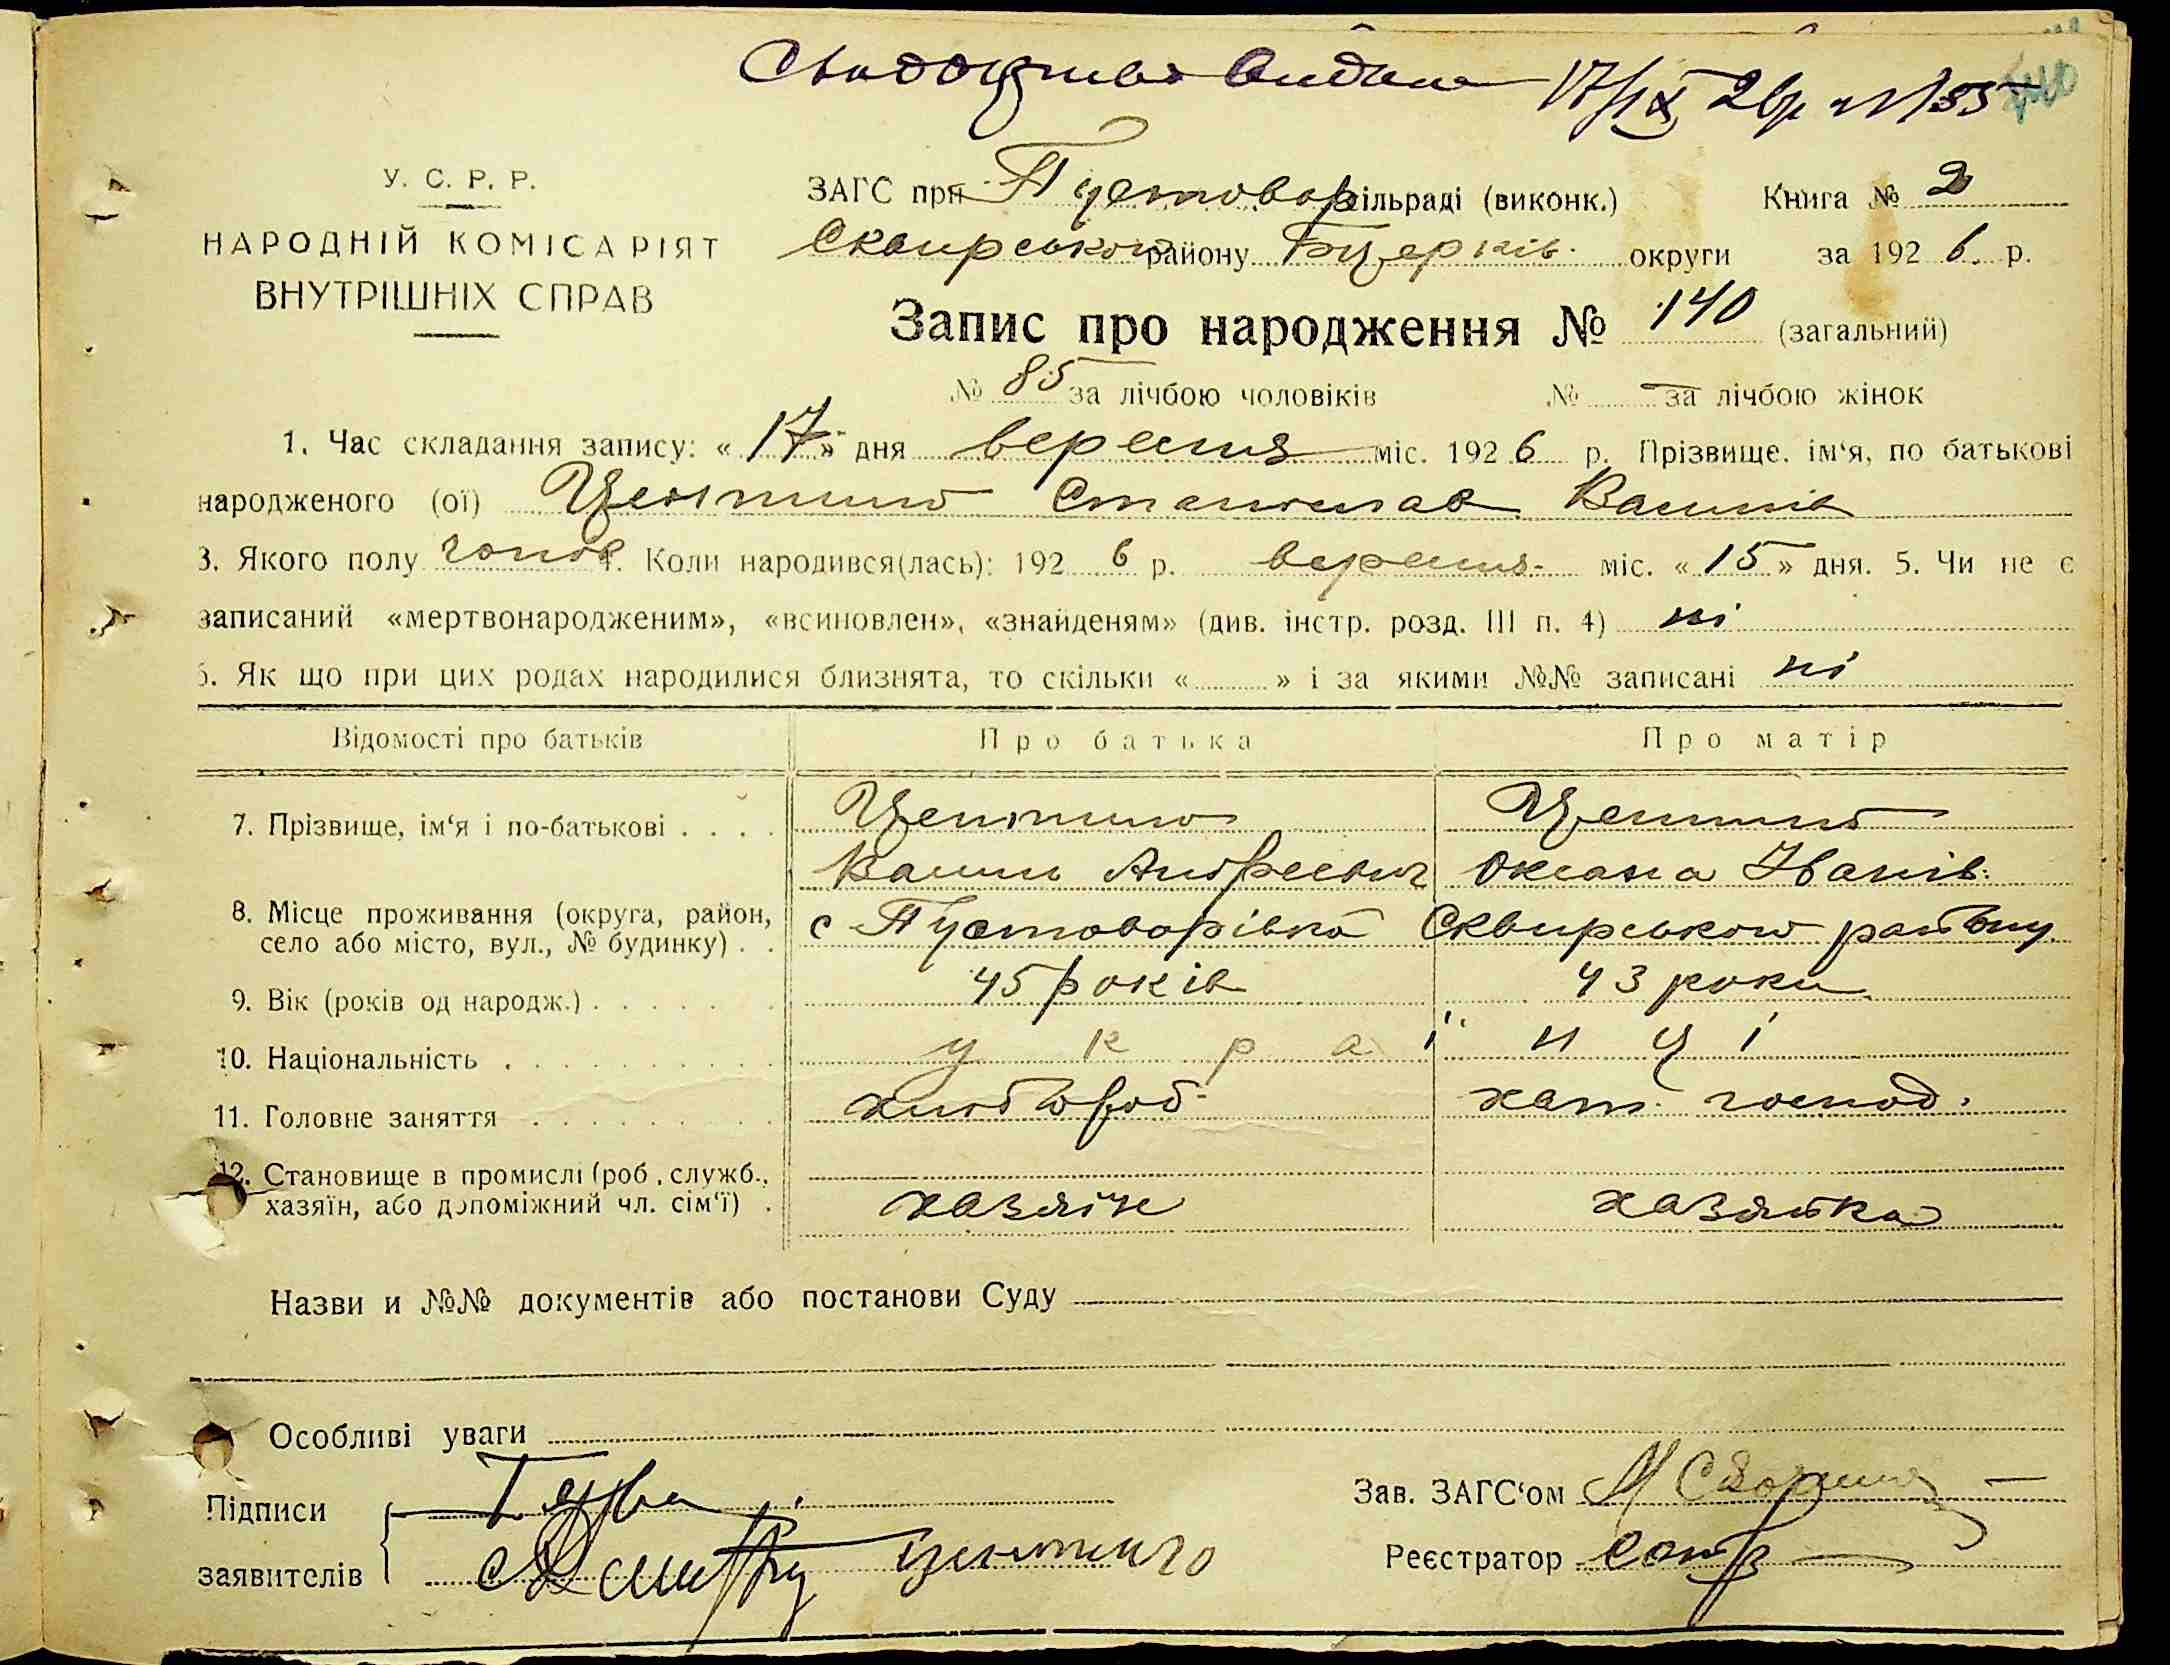 Свідоцтво видано 17/IX 26р №
У. С. Р. Р.
НАРОДНІЙ КОМІСАРІЯТ
ВНУТРІШНІХ СПРАВ
ЗАГС при Пустовар сільраді (виконк.) Книга № 2
Сквирського району Бцерків. округи за 1926. р.
Запис про народження № 140 (загальний)
№ 85 за лічбою чоловіків № — за лічбою жінок
1. Час складання запису: «17» дня вересня міс. 1926 р. Прізвище. ім'я, по батькові
народженого (ої) Станислав Василів
3. Якого полу чолов. 4. Коли народився(лась): 1926 р. вересня міс. «15» дня. 5. Чи не є
записаний «мертвонародженим», «всиновлен», «знайденям» (див. інстр. розд. III п. 4) ні
6. Як що при цих родах народилися близнята, то скільки « » і за якими №№ записані ні
Відомості про батьків Про батька Про матір
7. Прізвище, ім'я і по-батькові
Василь Андреевич Оксана Іванів.
8. Місце проживання (округа, район,
село або місто, вул., № будинку) с Пустоварівка Сквирського району
9. Вік (років од народж.) 45 років 43 роки
10. Національність українці
11. Головне заняття хлібороб хат. господ.
12. Становище в промислі (роб., служб.,
хазяїн, або допоміжний чл. сім'ї) хазяїн хазяйка
Назви и №№ документів або постанови Суду
Особливі уваги
Підписи
заявителів
Зав. ЗАГС'ом
Реєстратор